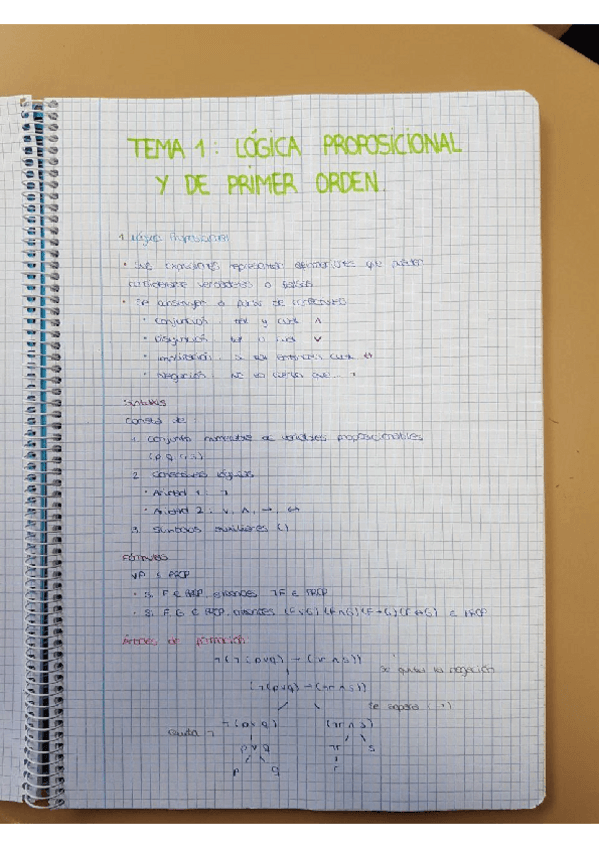 TEMA 1: LÓGICA PROPOSICIONAL
Y DE PRIMER ORDEN.
1. Lógica Proposicional
• Sus expresiones representan afirmaciones que pueden
considerarse verdaderas o falsas
• Se construyen a partir de conectivas
• Conjunción: tal y cual ∧
• Disyunción: tal o cual ∨
• Implicación: si tal entonces cual
• Negación: no es cierto que... ¬
Sintaxis
Consta de:
1. Conjunto numerable de variables proposicionales
(p, q, r, s)
2. Conectivas lógicas
• Aridad 1: ¬
• Aridad 2: ∨, ∧, →, ↔
3. Símbolos auxiliares ()
Fórmulas
VP ⊆ PROP
• Si F ∈ PROP, entonces ¬F ∈ PROP
• Si F, G ∈ PROP, entonces (F∨G) (F∧G) (F→G) (F↔G) ∈ PROP
Árboles de formación
¬(¬(p∨q) → (¬r∧s)) se quita la negación
(¬(p∨q) → (¬r∧s))
se separa (→)
¬(p∨q) (¬r∧s)
quita ¬
p∨q ¬r s
p q r